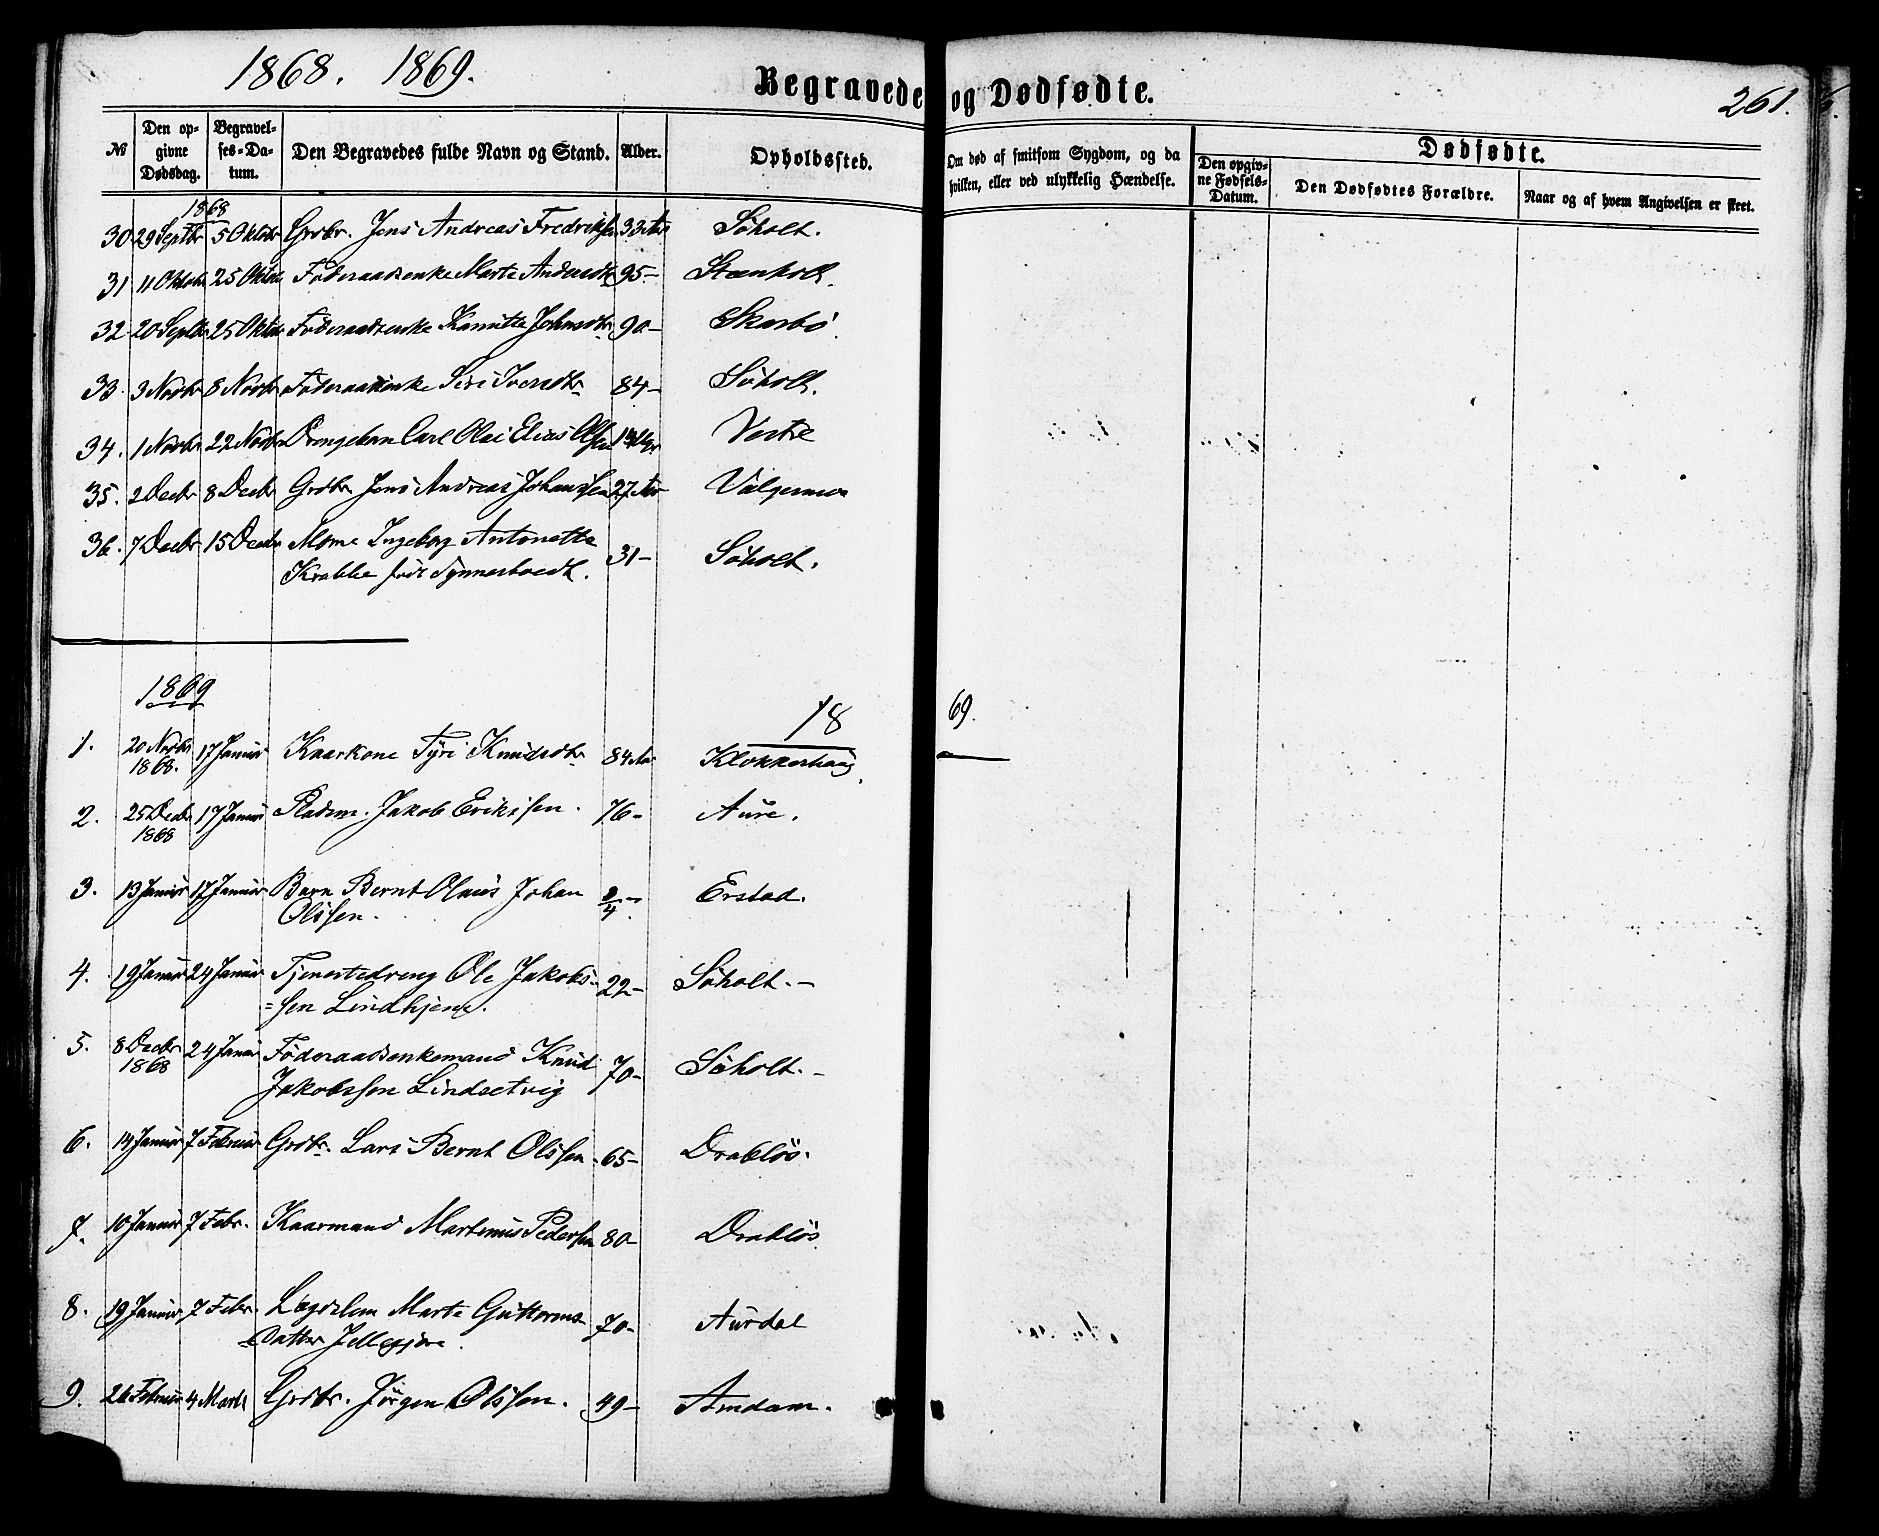 1868. 1869.
Begravede og Dødfødte.
261.
№ Den opgivne Dødsdag. Begravelses-Datum. Den Begravedes fulde Navn og Stand. Alder. Opholdssted. Om død af smitsom Sygdom, og da hvilken, eller ved ulykkelig Hændelse. Dødfødte.
Den opgivne Fødsels-Datum. Den Dødfødtes Forældre. Naar og af hvem Angivelsen er skeet.
1868
30 29 Septbr 5 Oktbr Grdbr. Jens Andreas Fredriksen 33 Aar Søholt.
31 11 Oktobr 25 Oktbr Føderaadsenke Marte Andersdtr 95- Stenholt.
32 20 Septbr 25 Oktbr Føderaadsenke Johnsdtr 90- Skarbø
33. 3 Novbr 8 Novbr Føderaadsenke Siri Iversdtr 84- Søholt.
34. 1 Novbr 22 Novbr Drengebarn Carl Olai Elias Olsen Vestre
35. 2 Decbr 8 Decbr Grdbr Jens Andreas Johanssen 27 Aar Valgermo
36. 7 Decbr 15 Decbr Mme Ingeborg Antonette 31- Søholt.
Krabbe født Synnestvedt.
1869
18 69.
1. 20 Novbr 1868. 17 Januar Kaarkone Syri Knudsdtr 84 Aar Klokkerhaug
2. 25 Decbr 1868 17 Januar Pladsm. Jakob Erikssen. 76- Aure.
3. 13 Januar 17 Januar Barn Bernt Olaus Johan Erstad.
Olssen.
4. 19 Januar 24 Januar Tjenestedreng Ole Jakobs- 22- Søholt.-
=sen Lindhjem.
5. 8 Decbr 1868 24 Januar Føderaadsenkemand Knud 70- Søholt.-
Jakobssen Lindsetvig
6. 14 Januar 7 Februar Grdbr. Lars Bernt Olssen. 65- Drabløs.
7. 10 Januar 7 Febr. Kaarmand Martinus Pedersen 80- Drabløs
8. 19 Januar 7 Febr. Lægdslem Marte Guttorms- 70- Aurdal
=Datter
9. 26 Februar 4 Marts Grdbr. Jörgen Olssen. 49- Amdam.